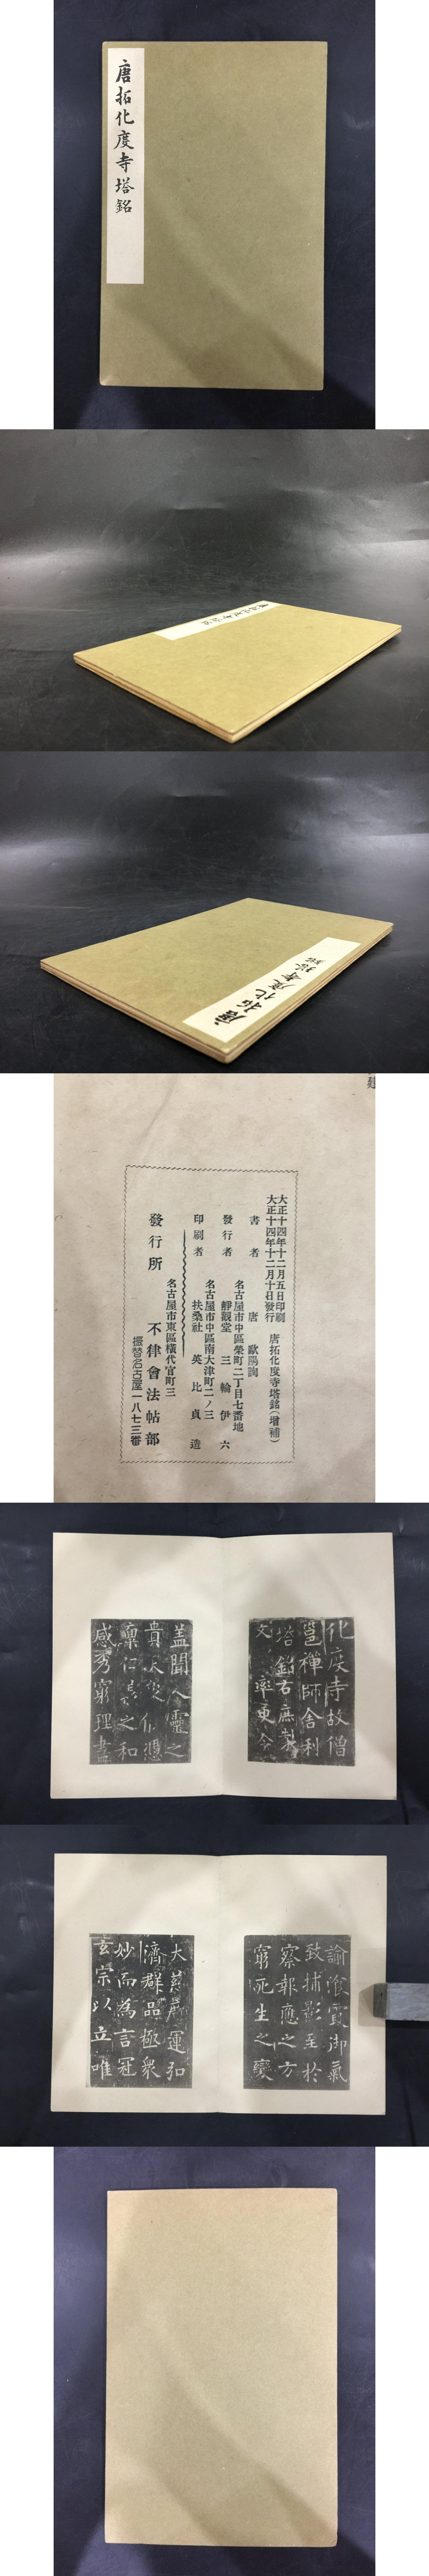 唐拓化度寺塔銘
唐拓化度寺塔銘
建
大正十四年十二月五日印刷
大正十四年十二月十日發行
唐拓化度寺塔銘(增補)
書者 唐 歐陽詢
名古屋市中區榮町二丁目七番地
發行者 靜觀堂 三輪伊六
名古屋市中區南大津町二ノ三
印刷者 扶桑社 英比貞造
名古屋市東區橫代官町三
發行所 不律會法帖部
振替名古屋一八七三番
化度寺故僧
邕禪師舎利
塔銘右庶
文 率更令
蓋聞人靈之
貴
之和
感秀窮理盡
諭飡霞御氣
致捕影至於
察報應之方
窮死生之變
大慈廣運弘
濟群品極衆
妙而為言冠
玄宗以立唯